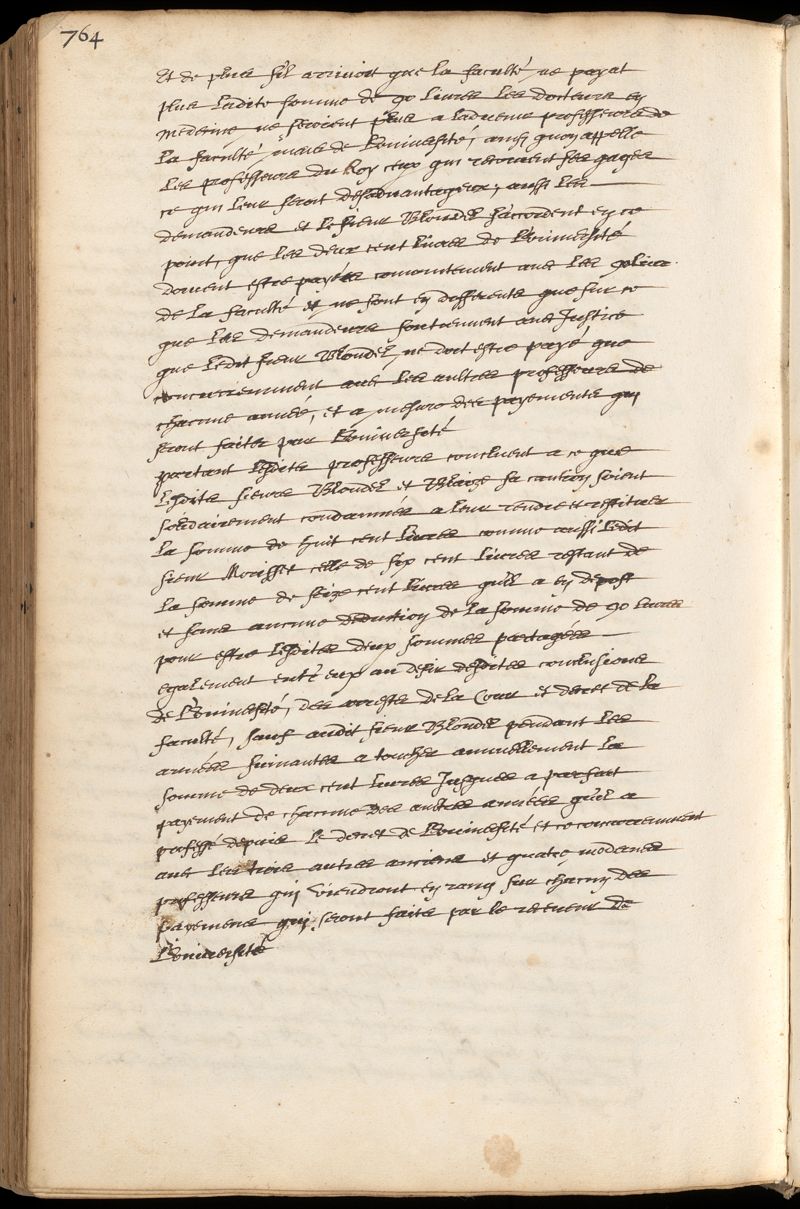 764
Et de plus s'il arrivoit que la faculté ne payat
plus ladite somme de 90 livres les docteurs en
medecine ne seroient plus a ladvenir professeurs de
la faculté mais de Lvniversité, ainsi quon appelle
les professeurs du Roy ceux qui recoivent ses gages
ce qui leur seroit desadvantageux, aussi les
demandeurs et le sieur Blondel s'accordent en ce
point, que les deux cent livres de Lvniversité
doivent estre payées conjointement avec les 90 livr.
de la faculté et ne sont en differents que sur ce
que les demandeurs soutiennent avec Justice
que ledit sieur Blondel ne doit estre payé que
concurremment avec les aultres professeurs de
chacune année, et a mesure des payements qui
seront faits par Lvniversité
partant lesdits professeurs concluent a ce que
lesdits sieurs Blondel et Blaize sa caution soient
solidairement condamnés a leur rendre et restituer
la somme de huit cent livres comme aussi ledit
sieur Morisset celle de six cent livres restant de
la somme de seize cent livres qu'il a en depost
et sans aucune deduction de la somme de 90 livres
pour estre lesdites deux sommes partagées
egalement entr'eux au desir desdites conclusions
de Lvniversité, des arrests de la Cour et decret de la
faculté, sauf audit sieur Blondel pendant les
années suivantes a toucher annuellement la
somme de deux cent livres Jusques a parfait
payement de chacune des autres années qu'il a
professé depuis le decret de Lvniversité et ce concurremment
avec les trois autres anciens et quatre modernes
professeurs qui viendront en rang sur chacun des
payemens qui seront faits par le receveur de
Lvniversité